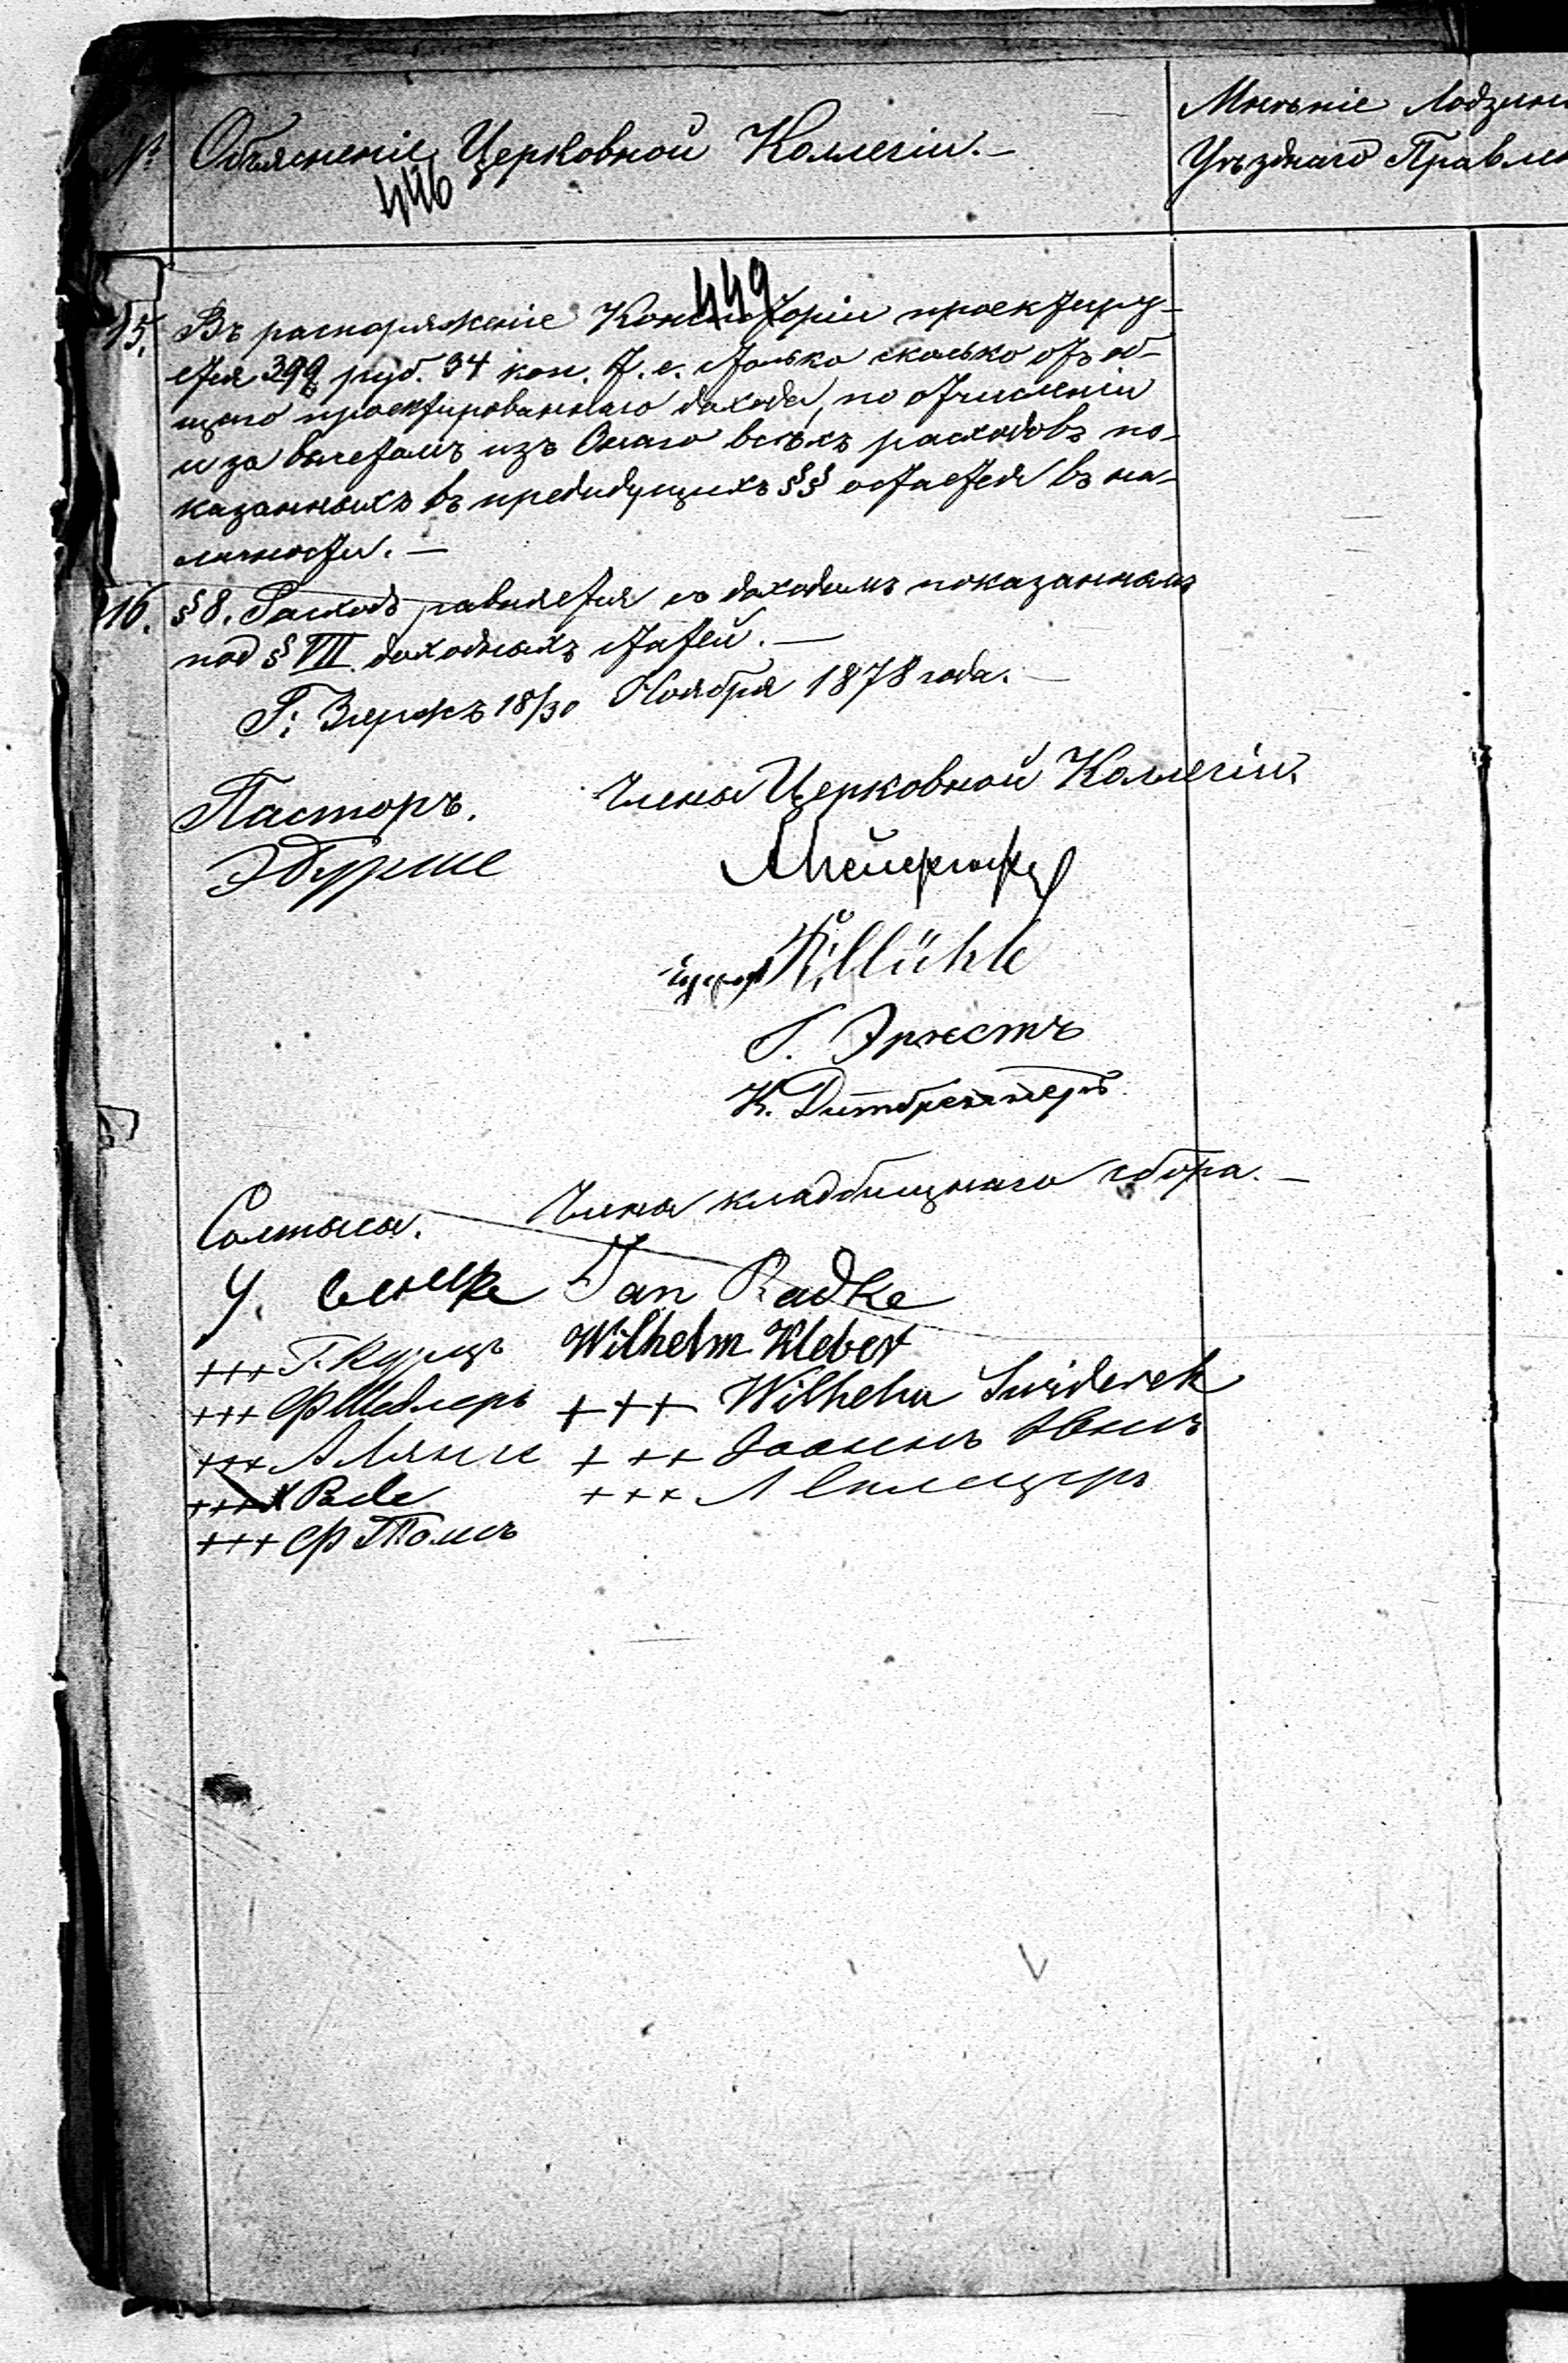 № Объясненіе Церковной Коллегіи. —
Мнѣніе Лодзинс
Уѣзднаго Правлен
446
449
15. Въ распоряженіе Консисторіи проектиру-
ется 399 руб. 34 коп. т. е. столько сколько отъ об-
щаго проектированнаго дохода, по отчисленіи
и за вычетомъ изъ Онаго всѣхъ расходовъ по-
казанныхъ въ предидущихъ §§ остается въ на-
личности. —
16. § 8. Расходъ равняется съ доходомъ показаннымъ
под § VII доходныхъ статей. —
Г. Згержъ 18/30 Ноября 1878 года. —
Пасторъ.
Члены Церковной Коллегіи.
Мейергофъ
Mühle
Г. Эрнстъ
К. Дитбреннеръ
Солтысы.
Члены кладбищнаго сбора. —
У.
Jan Radke
+++ Г. Курцъ
Wilhelm Klebert
+++ Ф
+++ Wilhelm Swiderek
+++ А
+++
+++ Rode
+++ Л
+++ Ф Томъ